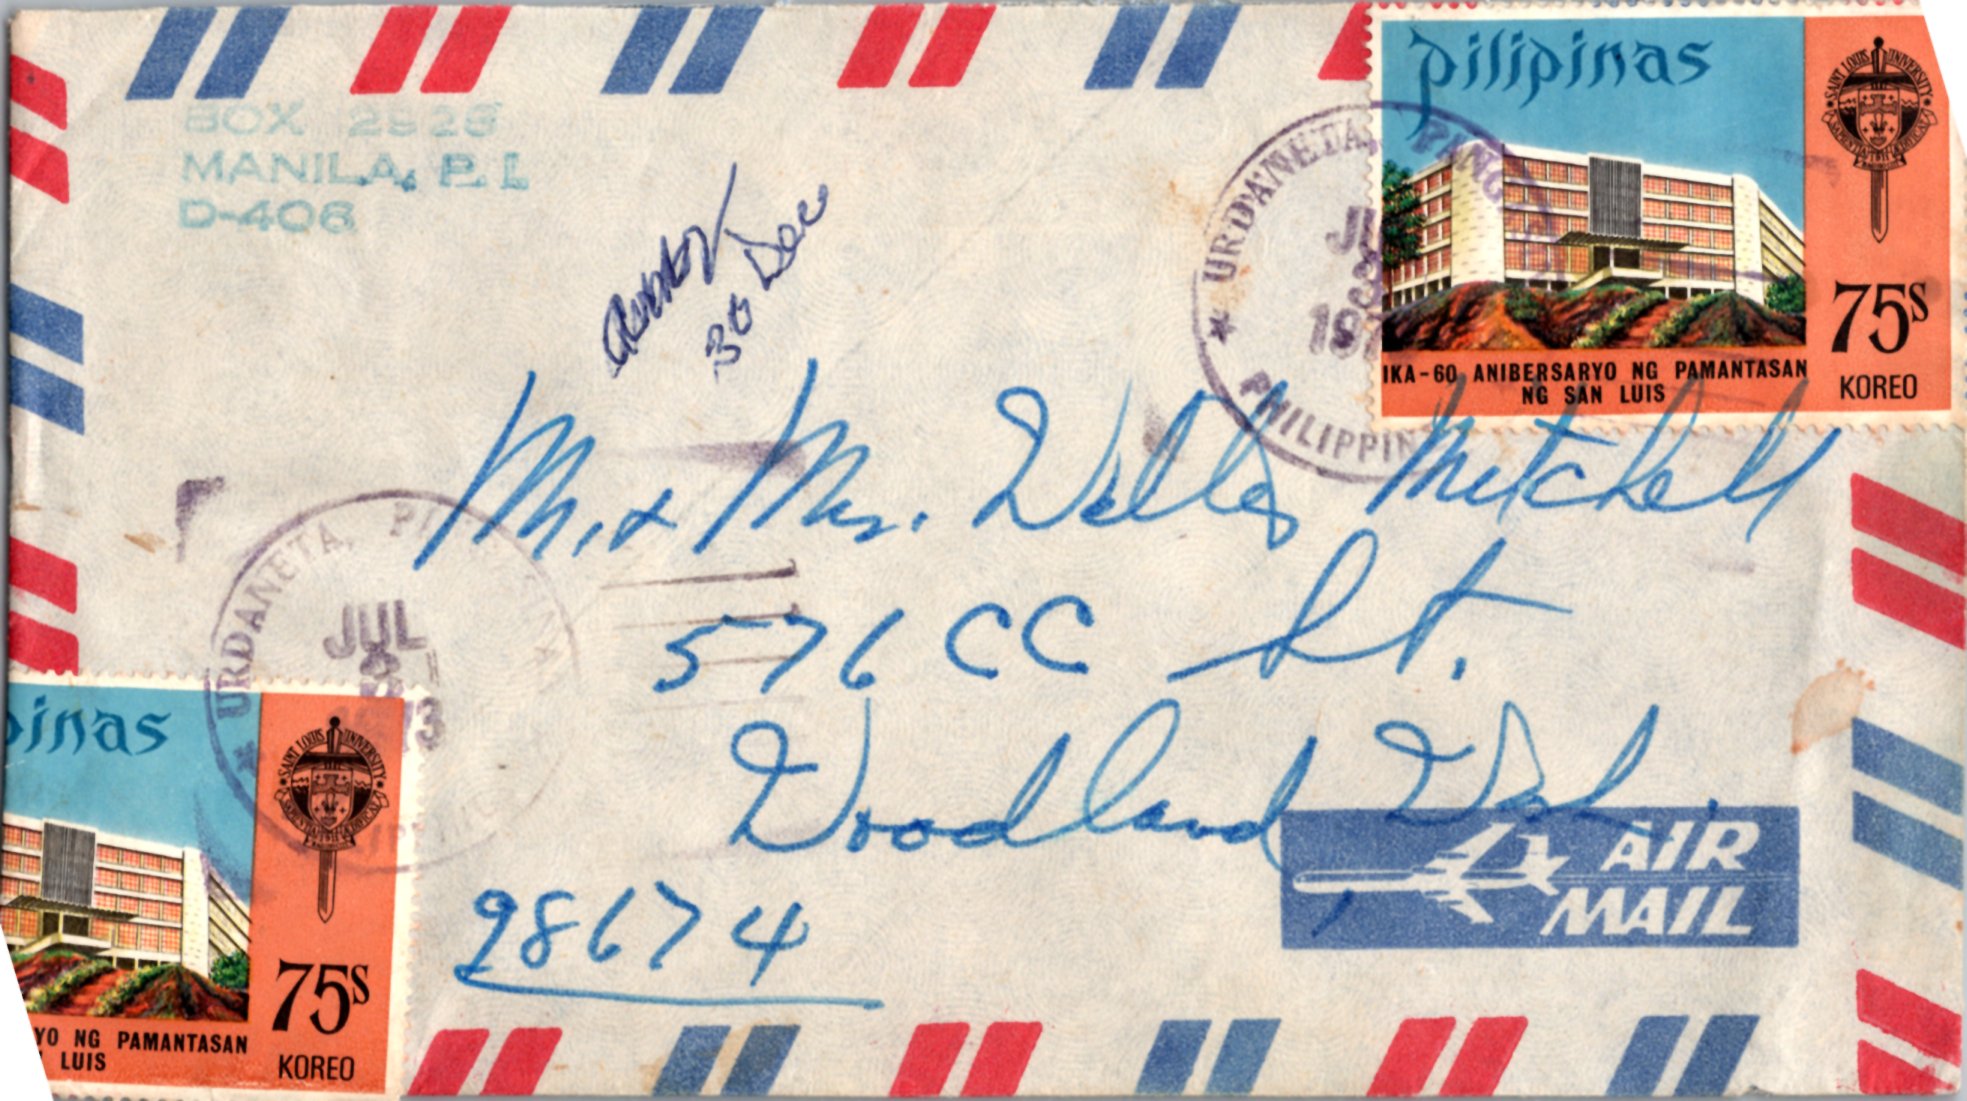 BOX 2526
MANILA, P. I.
D-406
30 Dec
pilipinas
SAINT LOUIS UNIVERSITY
75s
KOREO
IKA-60 ANIBERSARYO NG PAMANTASAN
NG SAN LUIS
URDANETA, PANG
JUL
8
PHILIPPIN
Mr. & Mrs. Welles Mitchell
576 CC St.
Woodland, Wash.
98674
URDANETA, P
JUL
8
1973
AIR
MAIL
pinas
SAINT LOUIS UNIVERSITY
75s
KOREO
YO NG PAMANTASAN
LUIS